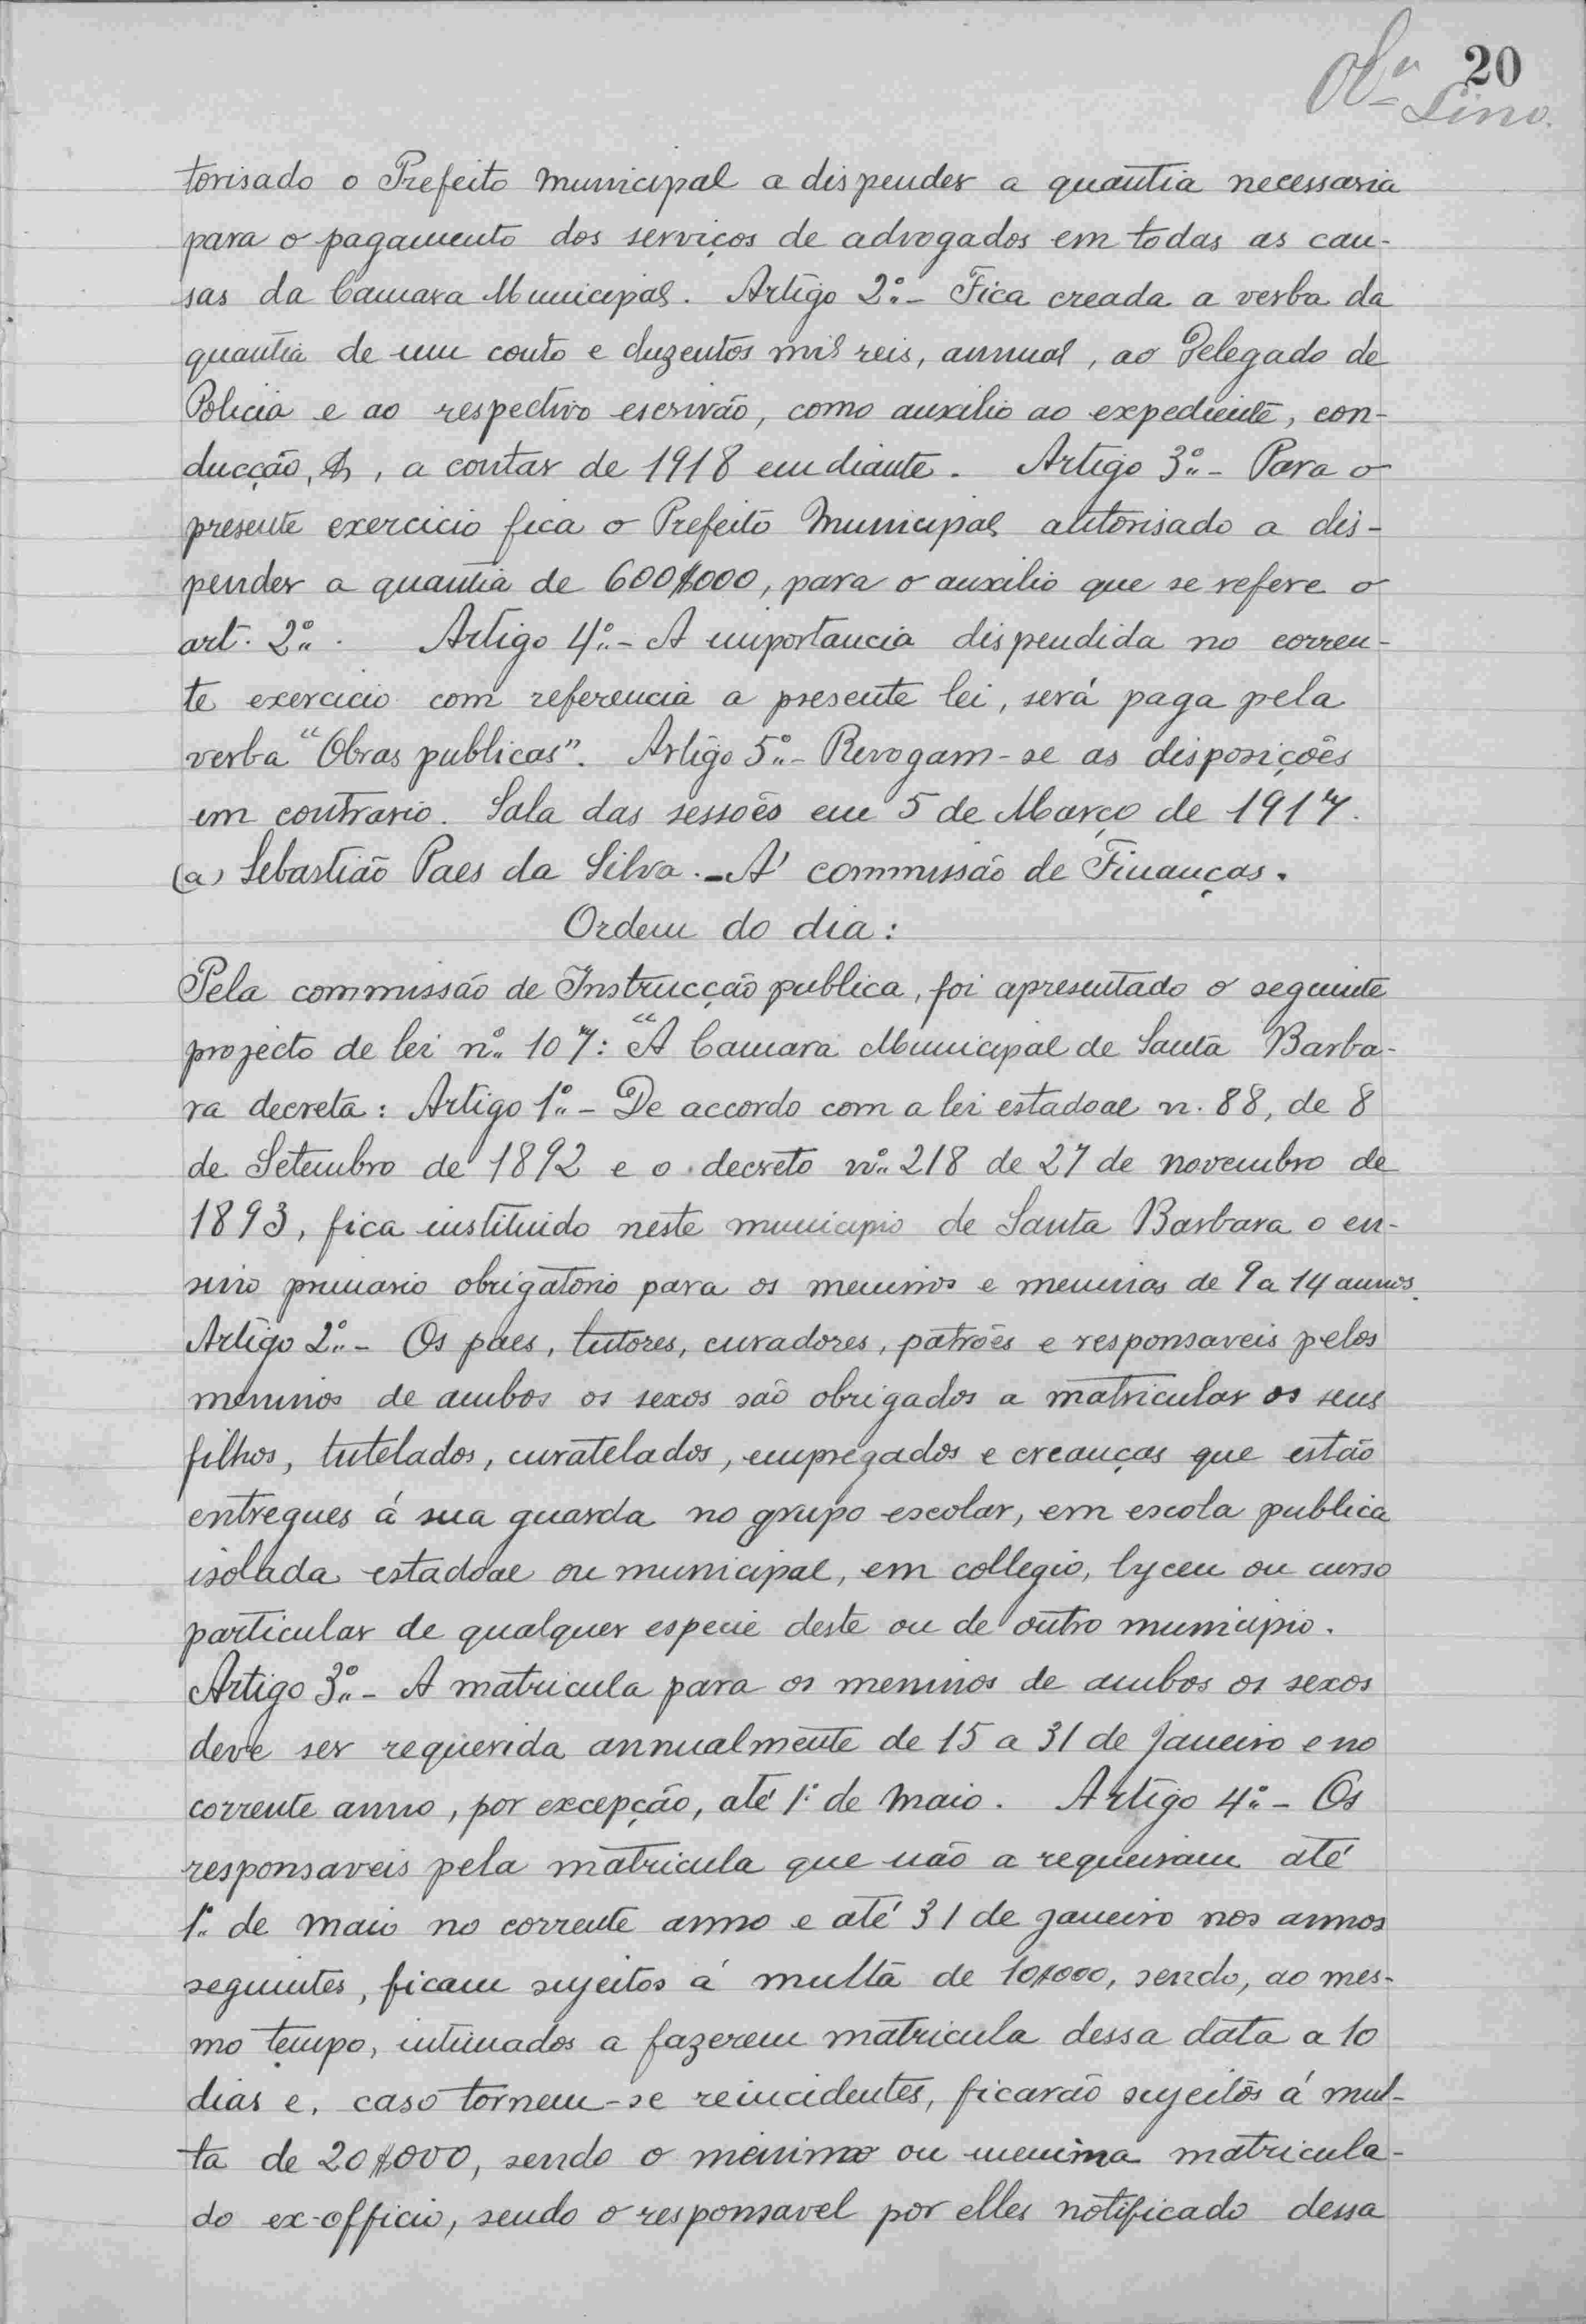 20
Lino.
torisado o Prefeito Municipal a dispender a quantia necessaria
para o pagamento dos serviços de advogados em todas as cau-
sas da Camara Municipal. Artigo 2º- Fica creada a verba da
quantia de um conto e duzentos mil reis, annual, ao Delegado de
Policia e ao respectivo escrivão, como auxilio ao expediente, con-
ducção, &, a contar de 1918 em diante. Artigo 3º- Para o
presente exercicio fica o Prefeito Municipal autorisado a dis-
pender a quantia de 600$000, para o auxilio que se refere o
art. 2º. Artigo 4º- A importancia dispendida no corren-
te exercicio com referencia a presente lei, será paga pela
verba "Obras publicas". Artigo 5º- Revogam-se as disposições
em contrario. Sala das sessões em 5 de Março de 1917.
(a) Sebastião Paes da Silva. - A' commissão de Finanças.
Ordem do dia:
Pela commissão de Instrucção publica, foi apresentado o seguinte
projecto de lei nº 107: "A Camara Municipal de Santa Barba-
ra decreta: Artigo 1º- De accordo com a lei estadoal n. 88, de 8
de Setembro de 1892 e o decreto nº 218 de 27 de novembro de
1893, fica instituido neste municipio de Santa Barbara o en-
sino primario obrigatorio para os meninos e meninas de 9 a 14 annos.
Artigo 2º- Os paes, tutores, curadores, patrões e responsaveis pelos
meninos de ambos os sexos são obrigados a matricular os seus
filhos, tutelados, curatelados, empregados e creanças que estão
entregues á sua guarda no grupo escolar, em escola publica
isolada estadoal ou municipal, em collegio, lyceu ou curso
particular de qualquer especie deste ou de outro municipio.
Artigo 3º- A matricula para os meninos de ambos os sexos
deve ser requerida annualmente de 15 a 31 de Janeiro e no
corrente anno, por excepção, até 1º de Maio. Artigo 4º- Os
responsaveis pela matricula que não a requeiram até
1º de Maio no corrente anno e até 31 de janeiro nos annos
seguintes, ficam sujeitos á multa de 10$000, sendo, ao mes-
mo tempo, intimados a fazerem matricula dessa data a 10
dias e, caso tornem-se reincidentes, ficarão sujeitos á mul-
ta de 20$000, sendo o menino ou menina matricula-
do ex-officio, sendo o responsavel por elles notificado dessa